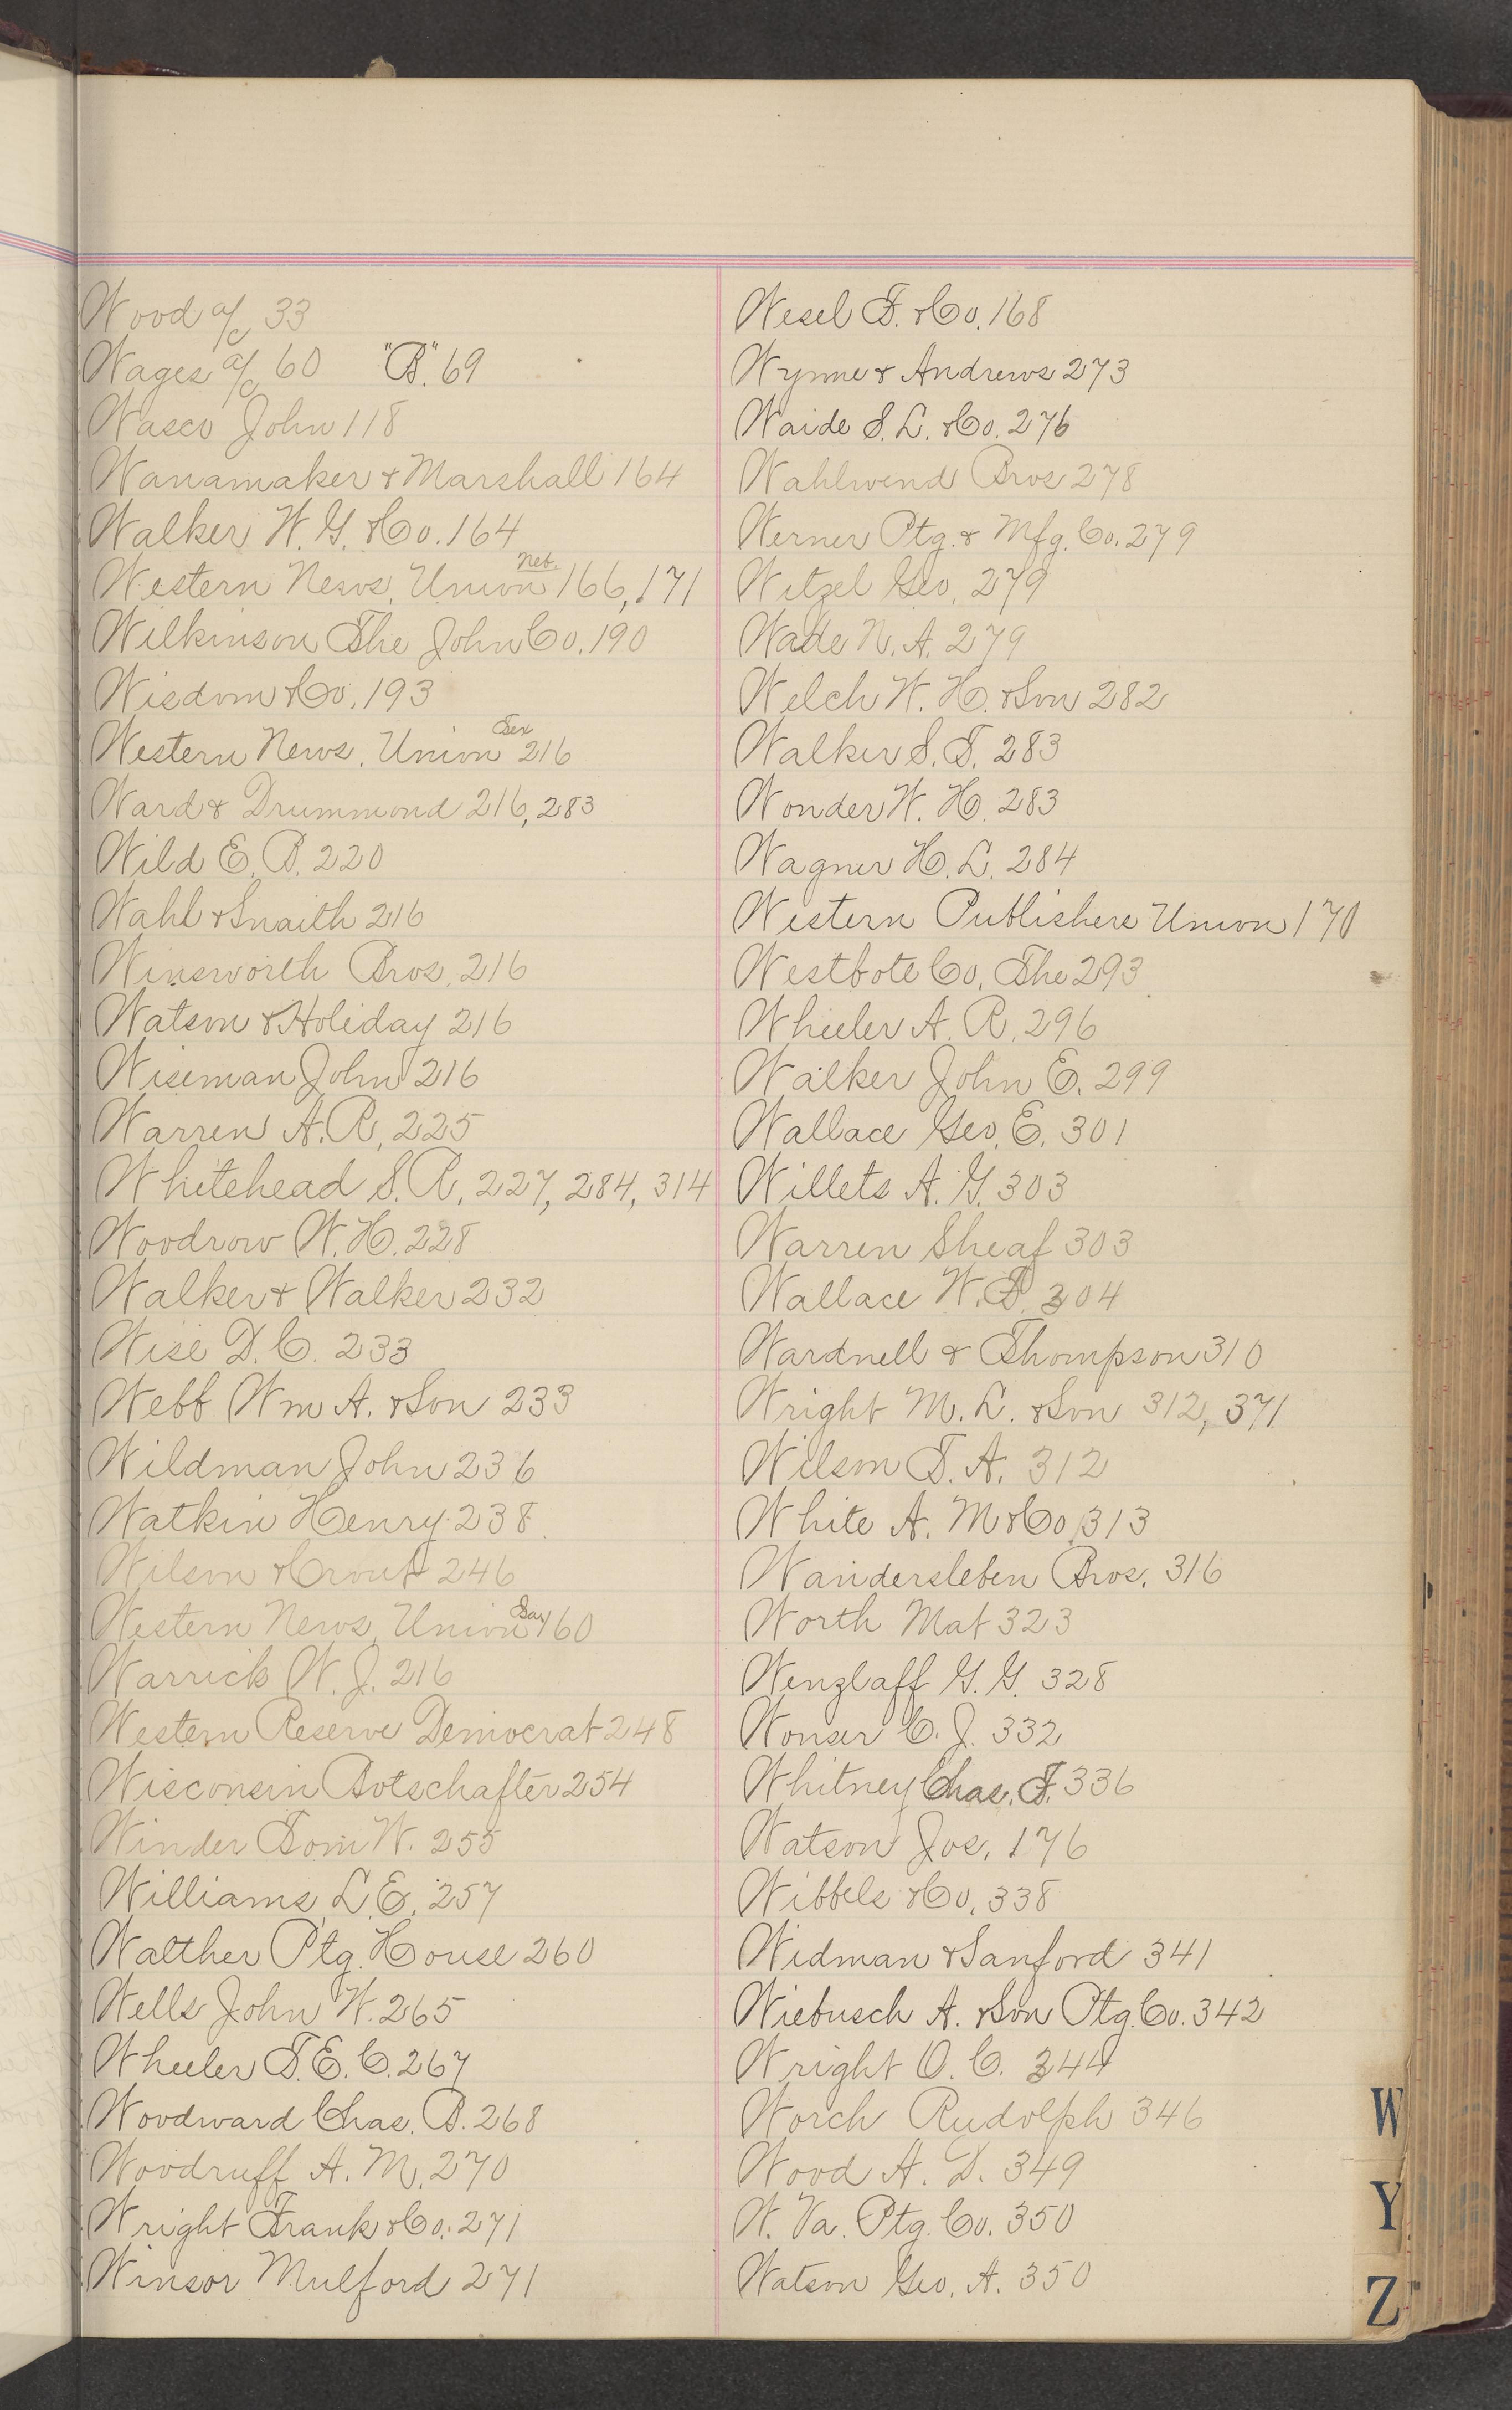 Wood a/c 33
Wages a/c 60 "B". 69
Wasco John 118
Wanamaker & Marshall 164
Walker W. G. & Co. 164
Western News. Union Neb. 166, 171
Wilkinson The John Co. 190
Wisdom & Co. 193
Western News. Union Tex 216
Ward & Drummond 216, 283
Wild E. B. 220
Wahl & Snaith 216
Winsworth Bros. 216
Watson & Holiday 216
Wiseman John 216
Warren A. R. 225
Whitehead S. R. 227, 284, 314
Woodrow W. H. 228
Walker & Walker 232
Wise D. C. 233
Webb Wm A. & Son 233
Wildman John 236
Watkin Henry 238
Wilson & Crout 246
Western News. Union 160
Warrick W. J. 216
Western Reserve Democrat 248
Wisconsin Botschafter 254
Winder Tom W. 255
Williams L. E. 257
Walther Ptg. House 260
Wells John W. 265
Wheeler T. E. C. 267
Woodward Chas. B. 268
Woodruff A. M. 270
Wright Frank & Co. 271
Winsor Mulford 271
Wesel F. & Co. 168
Wynne & Andrews 273
Waide S. L. & Co. 276
Wahlwend Bros 278
Werner Ptg. & Mfg. Co. 279
Witzel Geo. 279
Wade N. A. 279
Welch W. H. & Son 282
Walker S. T. 283
Wonder W. H. 283
Wagner H. L. 284
Western Publishers Union 170
Westbote Co. The 293
Wheeler A. R. 296
Walker John E. 299
Wallace Geo. E. 301
Willets A. G. 303
Warren Sheaf 303
Wallace W. 304
Wardnell & Thompson 310
Wright M. L. & Son 312, 371
Wilson T. A. 312
White A. M & Co. 313
Wandersleben Bros. 316
Worth Mat 323
Wenzlaff G. G. 328
Wonser C. J. 332
Whitney Chas. F. 336
Watson Jos. 176
Wibbels & Co. 338
Widman & Sanford 341
Wiebusch A. & Son Ptg. Co. 342
Wright O. C. 344
Worch Rudolph 346
Wood A. D. 349
W. Va. Ptg. Co. 350
Watson Geo. A. 350
W
Y
Z